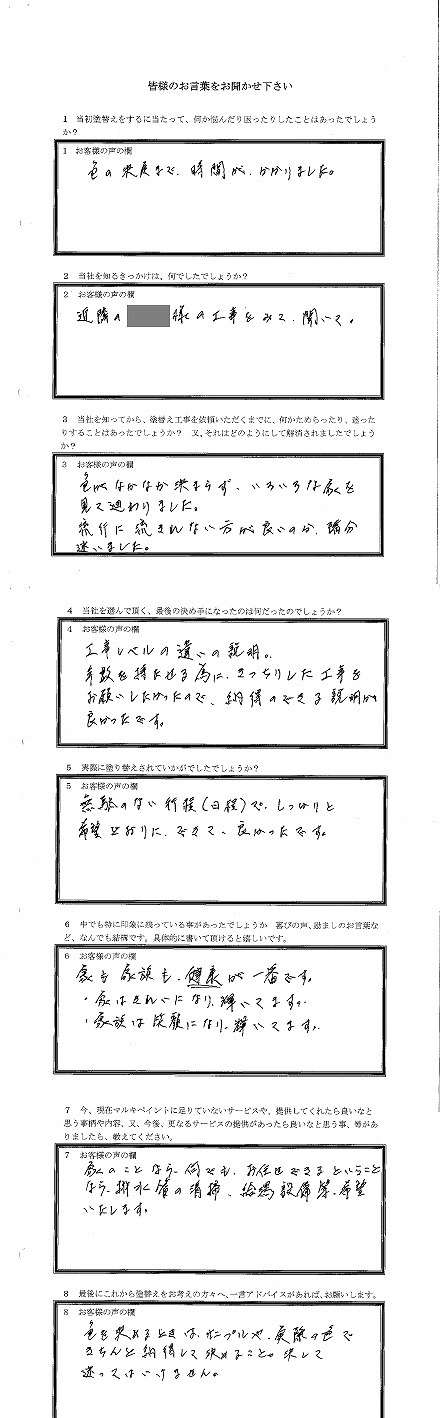 皆様のお言葉をお聞かせ下さい
1 当初塗替えをするに当たって、何か悩んだり困ったりしたことはあったでしょう
か？
1 お客様の声の欄
色の決定まで、時間が、かかりました。
2 当社を知るきっかけは、何でしたでしょうか？
2 お客様の声の欄
近隣の 様の工事をみて、聞いて。
3 当社を知ってから、塗替え工事を依頼いただくまでに、何かためらったり、迷った
りすることはあったでしょうか？ 又、それはどのようにして解消されましたでしょう
か？
3 お客様の声の欄
色がなかなか決まらず、いろいろな家を
見て廻わりました。
流行に流されない方が良いのか、随分
迷いました。
4 当社を選んで頂く、最後の決め手になったのは何だったのでしょうか？
4 お客様の声の欄
工事レベルの違いの説明。
年数を持たせる為に、きっちりした工事を
お願いしたかったので、納得のできる説明が
良かったです。
5 実際に塗り替えされていかがでしたでしょうか？
5 お客様の声の欄
無駄のない行程（日程）で、しっかりと
希望どおりに、できて、良かったです。
6 中でも特に印象に残っている事があったでしょうか 喜びの声、励ましのお言葉な
ど、なんでも結構です。具体的に書いて頂けると嬉しいです。
6 お客様の声の欄
家も家族も、健康が一番です。
・家はきれいになり、輝いてます。
・家族は笑顔になり、輝いてます。
7 今、現在マルキペイントに足りていないサービスや、提供してくれたら良いなと
思う事柄や内容、又、今後、更なるサービスの提供があったら良いなと思う事、等があ
りましたら、教えてください。
7 お客様の声の欄
家のことなら、何でも、お任せできるということ
なら、排水管の清掃、給湯設備等、希望
いたします。
8 最後にこれから塗替えをお考えの方々へ、一言アドバイスがあれば、お願いします。
8 お客様の声の欄
色を決めるときは、サンプルや、実際の色で
きちんと納得して決めること。決して
迷ってはいけません。